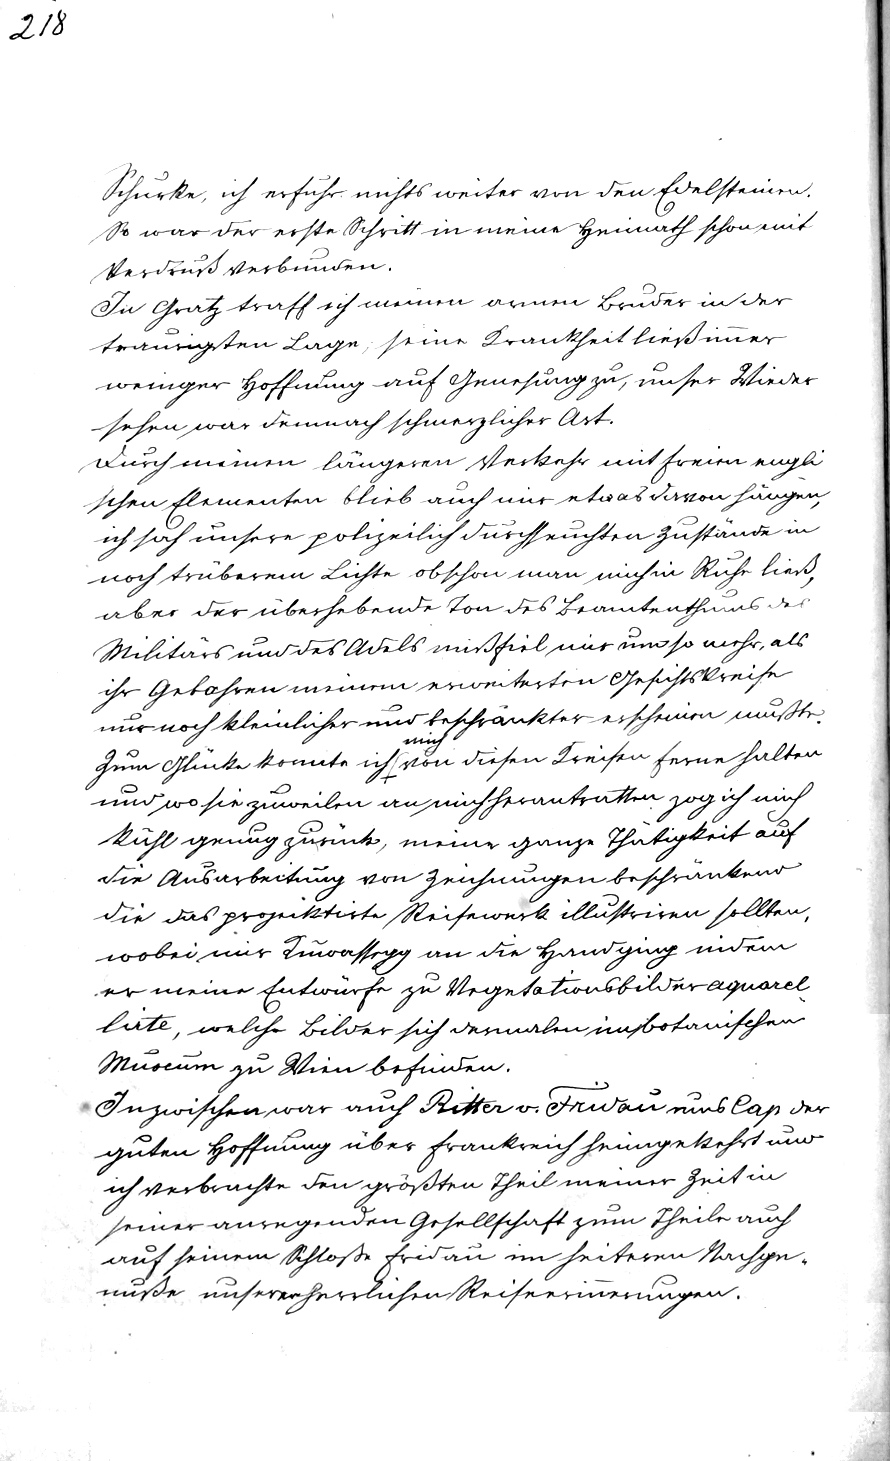 218
Schurke, ich erfuhr nichts weiter von den Edelsteinen.
So war der erste Schritt in meine Heimath schon mit
Verdruß verbunden.
In Gratz traff ich meinen armen Bruder in der
traurigsten Lage, seine Krankheit ließ immer
weniger Hoffnung auf Genesung zu, unser Wieder
sehen war demnach schmerzlicher Art.
Durch meinen längeren Verkehr mit freien engli
schen Elementen blieb auch mir etwas davon hängen,
ich sah unsere polizeilich durchseuchten Zustände in
noch trüberem Lichte obschon man mich in Ruhe ließ,
aber der überhebende Ton des Beamtenthums des
Militärs und des Adels mißfiel mir um so mehr, als
ihr Gebahren meinem erweiterten Gesichtskreise
nur noch kleinlicher und beschränkter erscheinen mußte.
Zum Glücke konnte ich mich von diesen Kreisen ferne halten
und wo sie zuweilen an mich herantratten zog ich mich
kühl genug zurück, meine ganze Thätigkeit auf
die Ausarbeitung von Zeichnungen beschränkend
die das projektirte Reisewerk illustriren sollten,
wobei mir Kuwassegg an die Hand ging indem
er meine Entwürfe zu Vegetationsbilder aquarel
lirte, welche Bilder sich dermalen im botanischen
Museum zu Wien befinden.
Inzwischen war auch Ritter v. Fridau ums Cap der
guten Hoffnung über Frankreich heimgekehrt und
ich verbrachte den größten Theil meiner Zeit in
seiner anregenden Gesellschaft zum Theile auch
auf seinem Schloße Fridau im heiteren Nachge-
nuße unserer herrlichen Reiseerinnerungen.